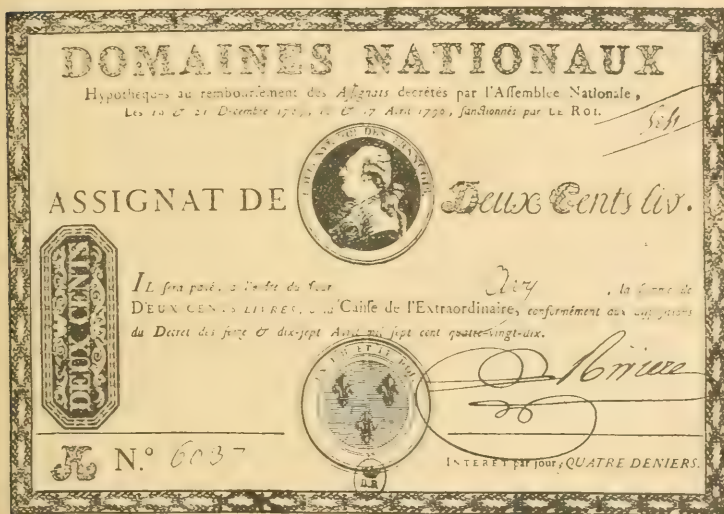 DOMAINES NATIONAUX
Hypothéqués au remboursement des Assignats décrétés par l'Assemblée Nationale,
Les & 21 Décembre & 17 Avril 1790, sanctionnés par LE ROI.
ASSIGNAT DE Deux Cents liv.
DEUX CENTS
IL sera payé, à l'ordre du Sieur , la somme de
DEUX CENTS LIVRES, à la Caisse de l'Extraordinaire, conformément aux
du Décret des seize & dix-sept Avril mil sept cent quatre-vingt-dix.
LA LOI ET LE ROI
N.º
INTERET par jour, QUATRE DENIERS.